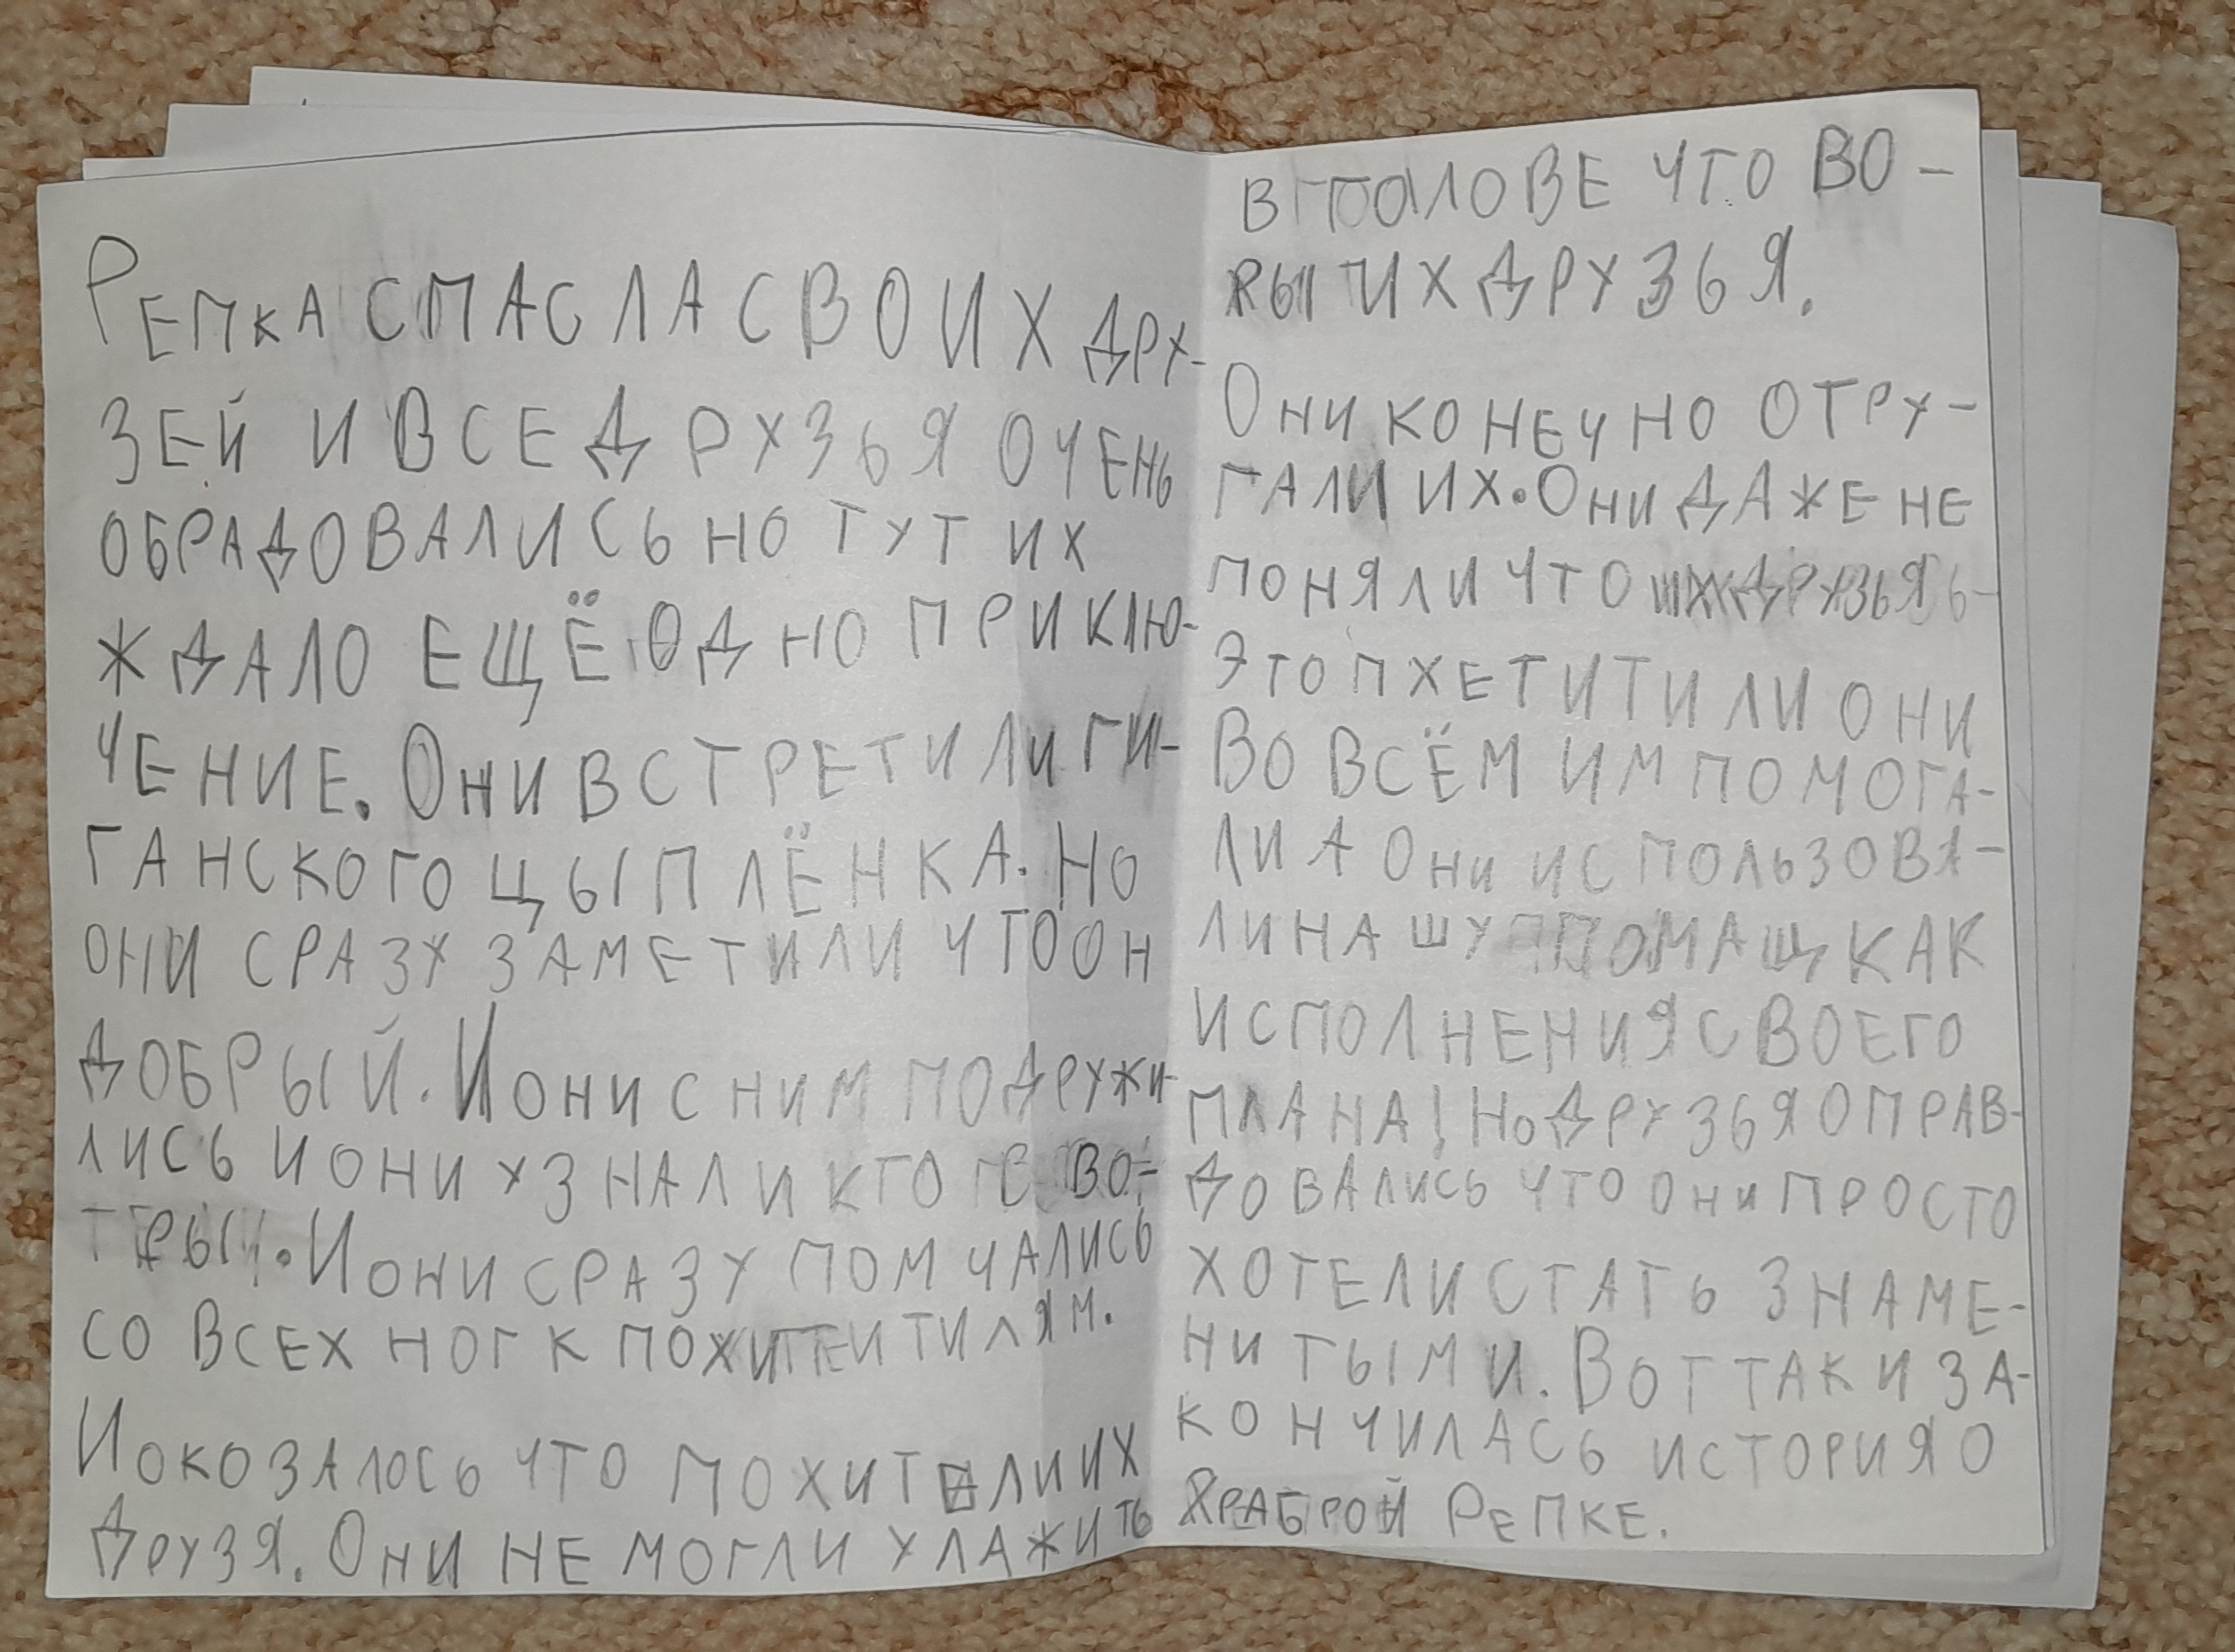 Репка спасла своих дру-
зей и все друзья очень
обрадовались но тут их
ждало ещё одно приклю-
чение. Они встретили ги-
ганского цыплёнка. Но
они сразу заметили что он
добрый. И они с ним подружи-
лись и они узнали кто во-
ры. И они сразу помчались
со всех ног к похитителям.
И оказалось что похители их
друзя. Они не могли улажить
в голове что во-
ры их друзья.
Они конечно отру-
гали их. Они даже не
поняли что
это они
во всём им помога-
ли а они использова-
ли нашу помащ как
исполнения своего
плана! Но друзья оправ-
довались что они просто
хотели стать знаме-
нитыми. Вот так и за-
кончилась история о
храброй Репке.